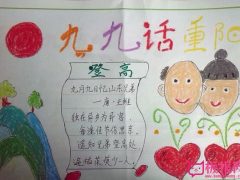 九九话重阳
登高
九月九日忆山东兄弟
—唐·王维
独在异乡为异客，
每逢佳节倍思亲。
遥知兄弟登高处
遍插茱萸少一人。